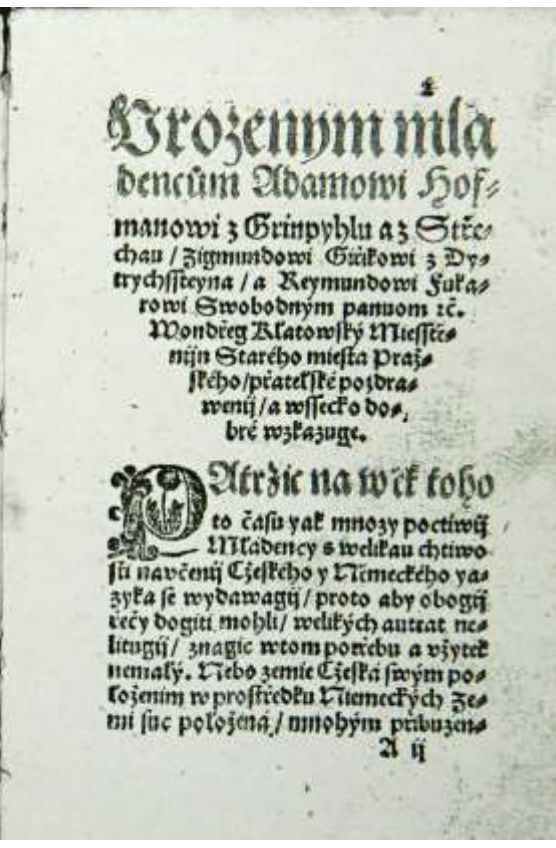 2
Vrozenym mla
dencům Adamowi Hof⸗
manowi z Grinpyhlu a z Střе⸗
chau / Zigmundowi Giřikowi z Dy⸗
trychssteyna / a Reymundowi Fuka⸗
rowi Swobodným panuom ꝛc̃.
Wondřeg Klatowský Miesstě⸗
nijn Starého miesta Praž⸗
ského / přatelské pozdra⸗
wenij / a wssecko do⸗
bré wzkazuge.
PAtržic na wěk toho
to času yak mnozy poctiwij
Mládency s welikau chtiwo
stí navčenij Cžeského y Německého ya⸗
zyka se wydawagij / proto aby obogij
řečy dogíti mohli / welikých autrat ne⸗
litugij / znagic w tom potřebu a vžytek
nemalý. Nebo zemie Cžeská swým po⸗
ložením w prostředku Niemeckých Ze⸗
mí suc položená / mnohým přibuzen⸗
A ij